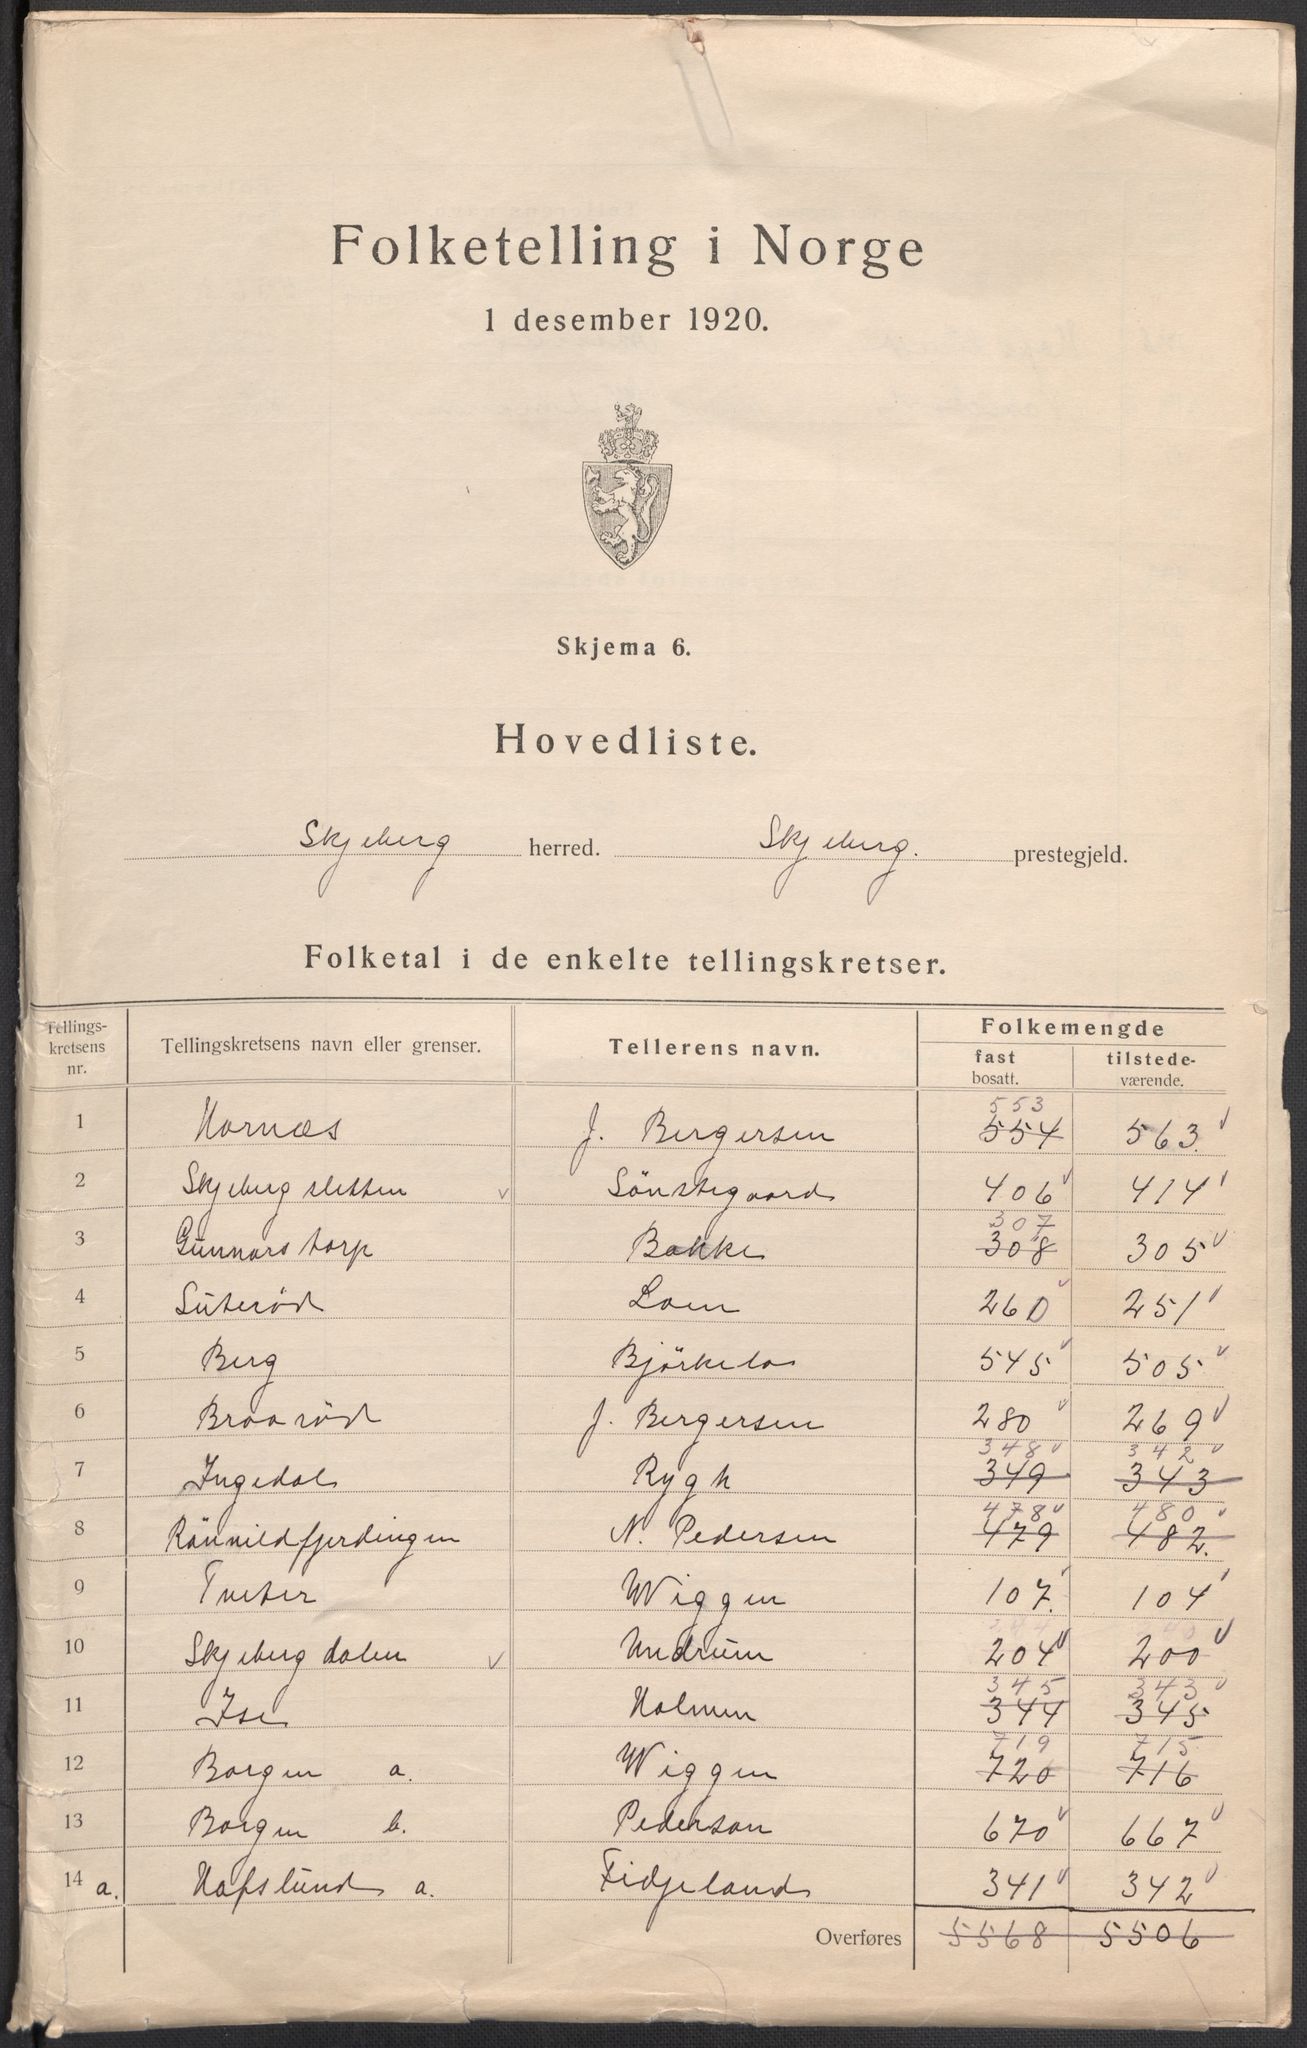 Folketelling i Norge
1 desember 1920.
Skjema 6.
Hovedliste.
Skjeberg herred. Skjeberg. prestegjeld.
Folketal i de enkelte tellingskretser.
Tellings-kretsens nr. Tellingskretsens navn eller grenser. Tellerens navn. Folkemengde fast bosatt. tilstede-værende.
553
1 Hornæs J. Bergersen 554 563.
2 Skjebergsletten Sönstegaard 406 414
307
3 Gunnarstorp Bakke 308 305
4 Suterød Lom 260 251
5 Berg Björkelo 545 505
6 Braarød J. Bergersen 280 269
348 342
7 Ingedal Rygh 349 343
478 480
8 Rönnildfjerdingen N. Pedersen 479 482.
9 Tveter Wiggen 107. 104
10 Skjebergdalen Undrum 204 200
345 343
11 Ise Holmen 344 345
719 715
12 Borgen a. Wiggen 720 716
13 Borgen b. Pederson 670 667
14 a. Hafslund a. Fidjeland 341 342
Overføres 5568 5506